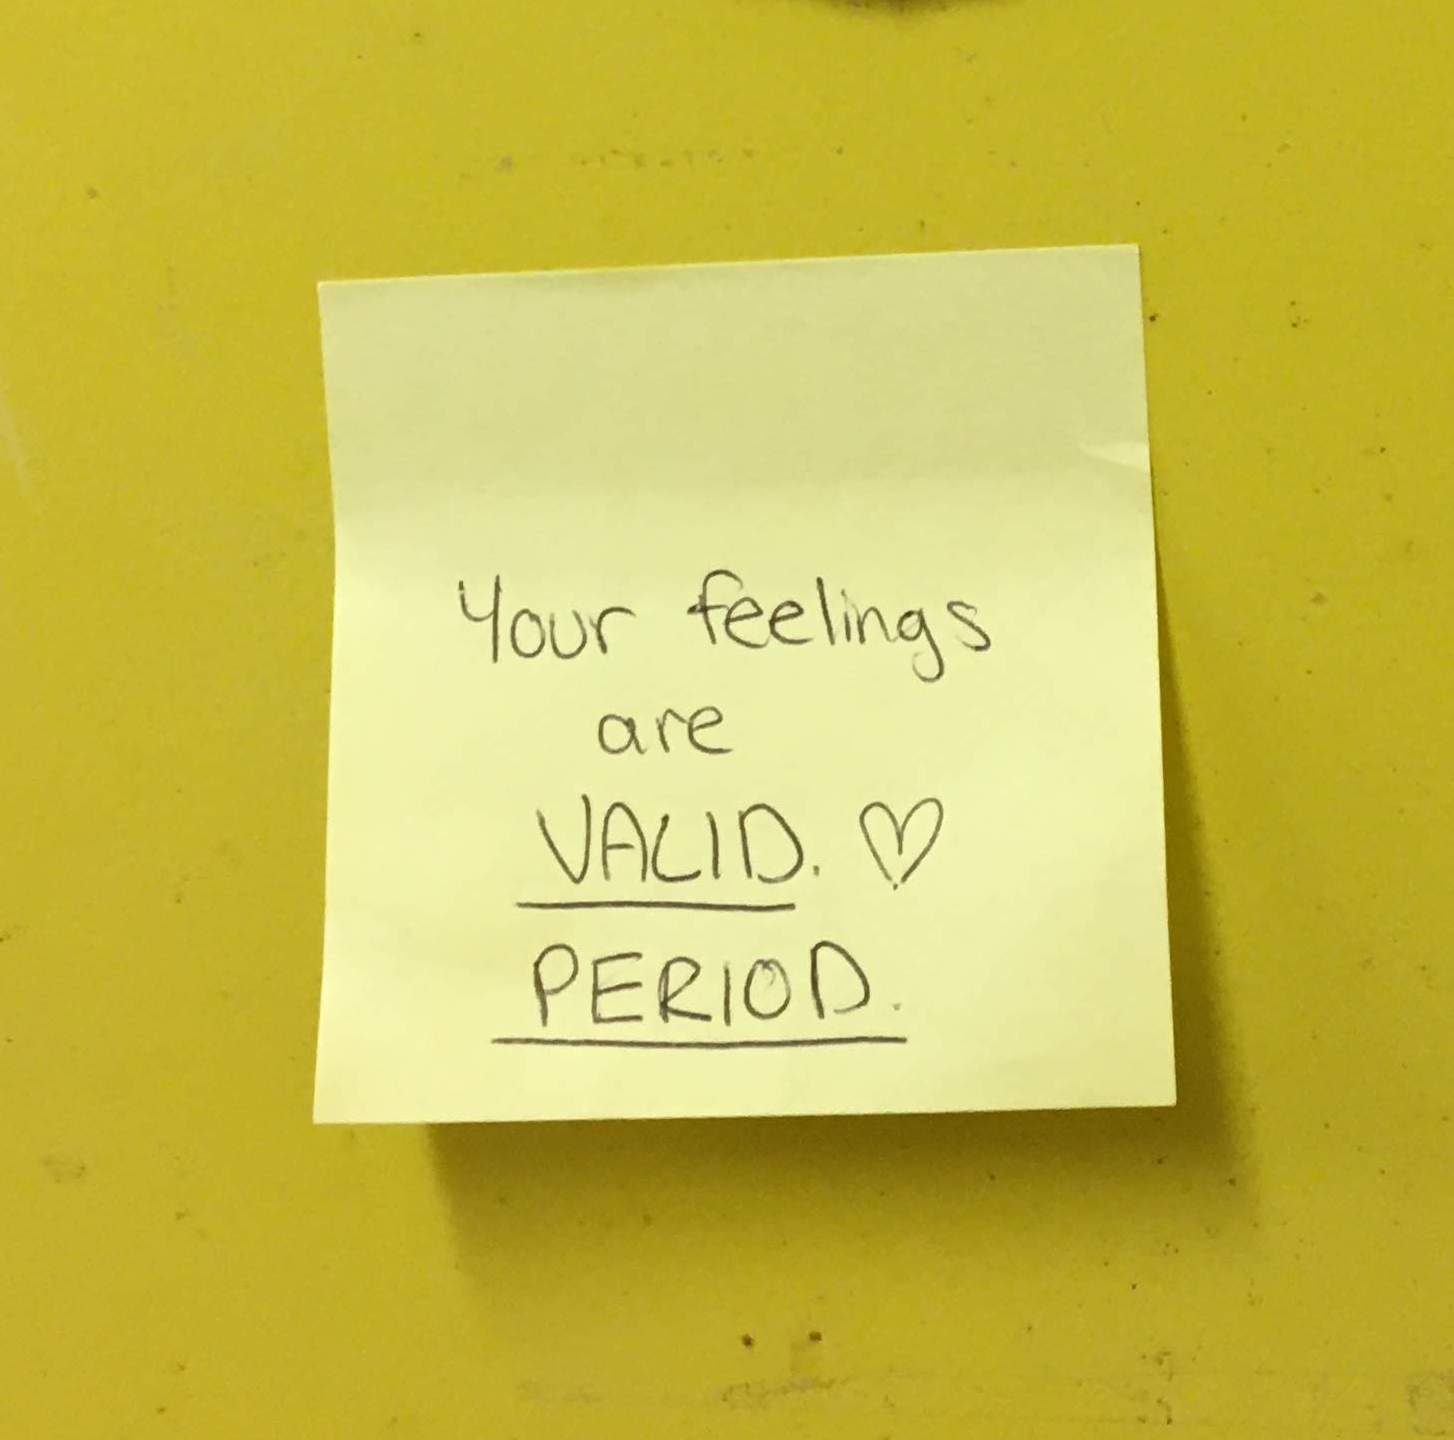 Your feelings
are
VALID. ♡
PERIOD.